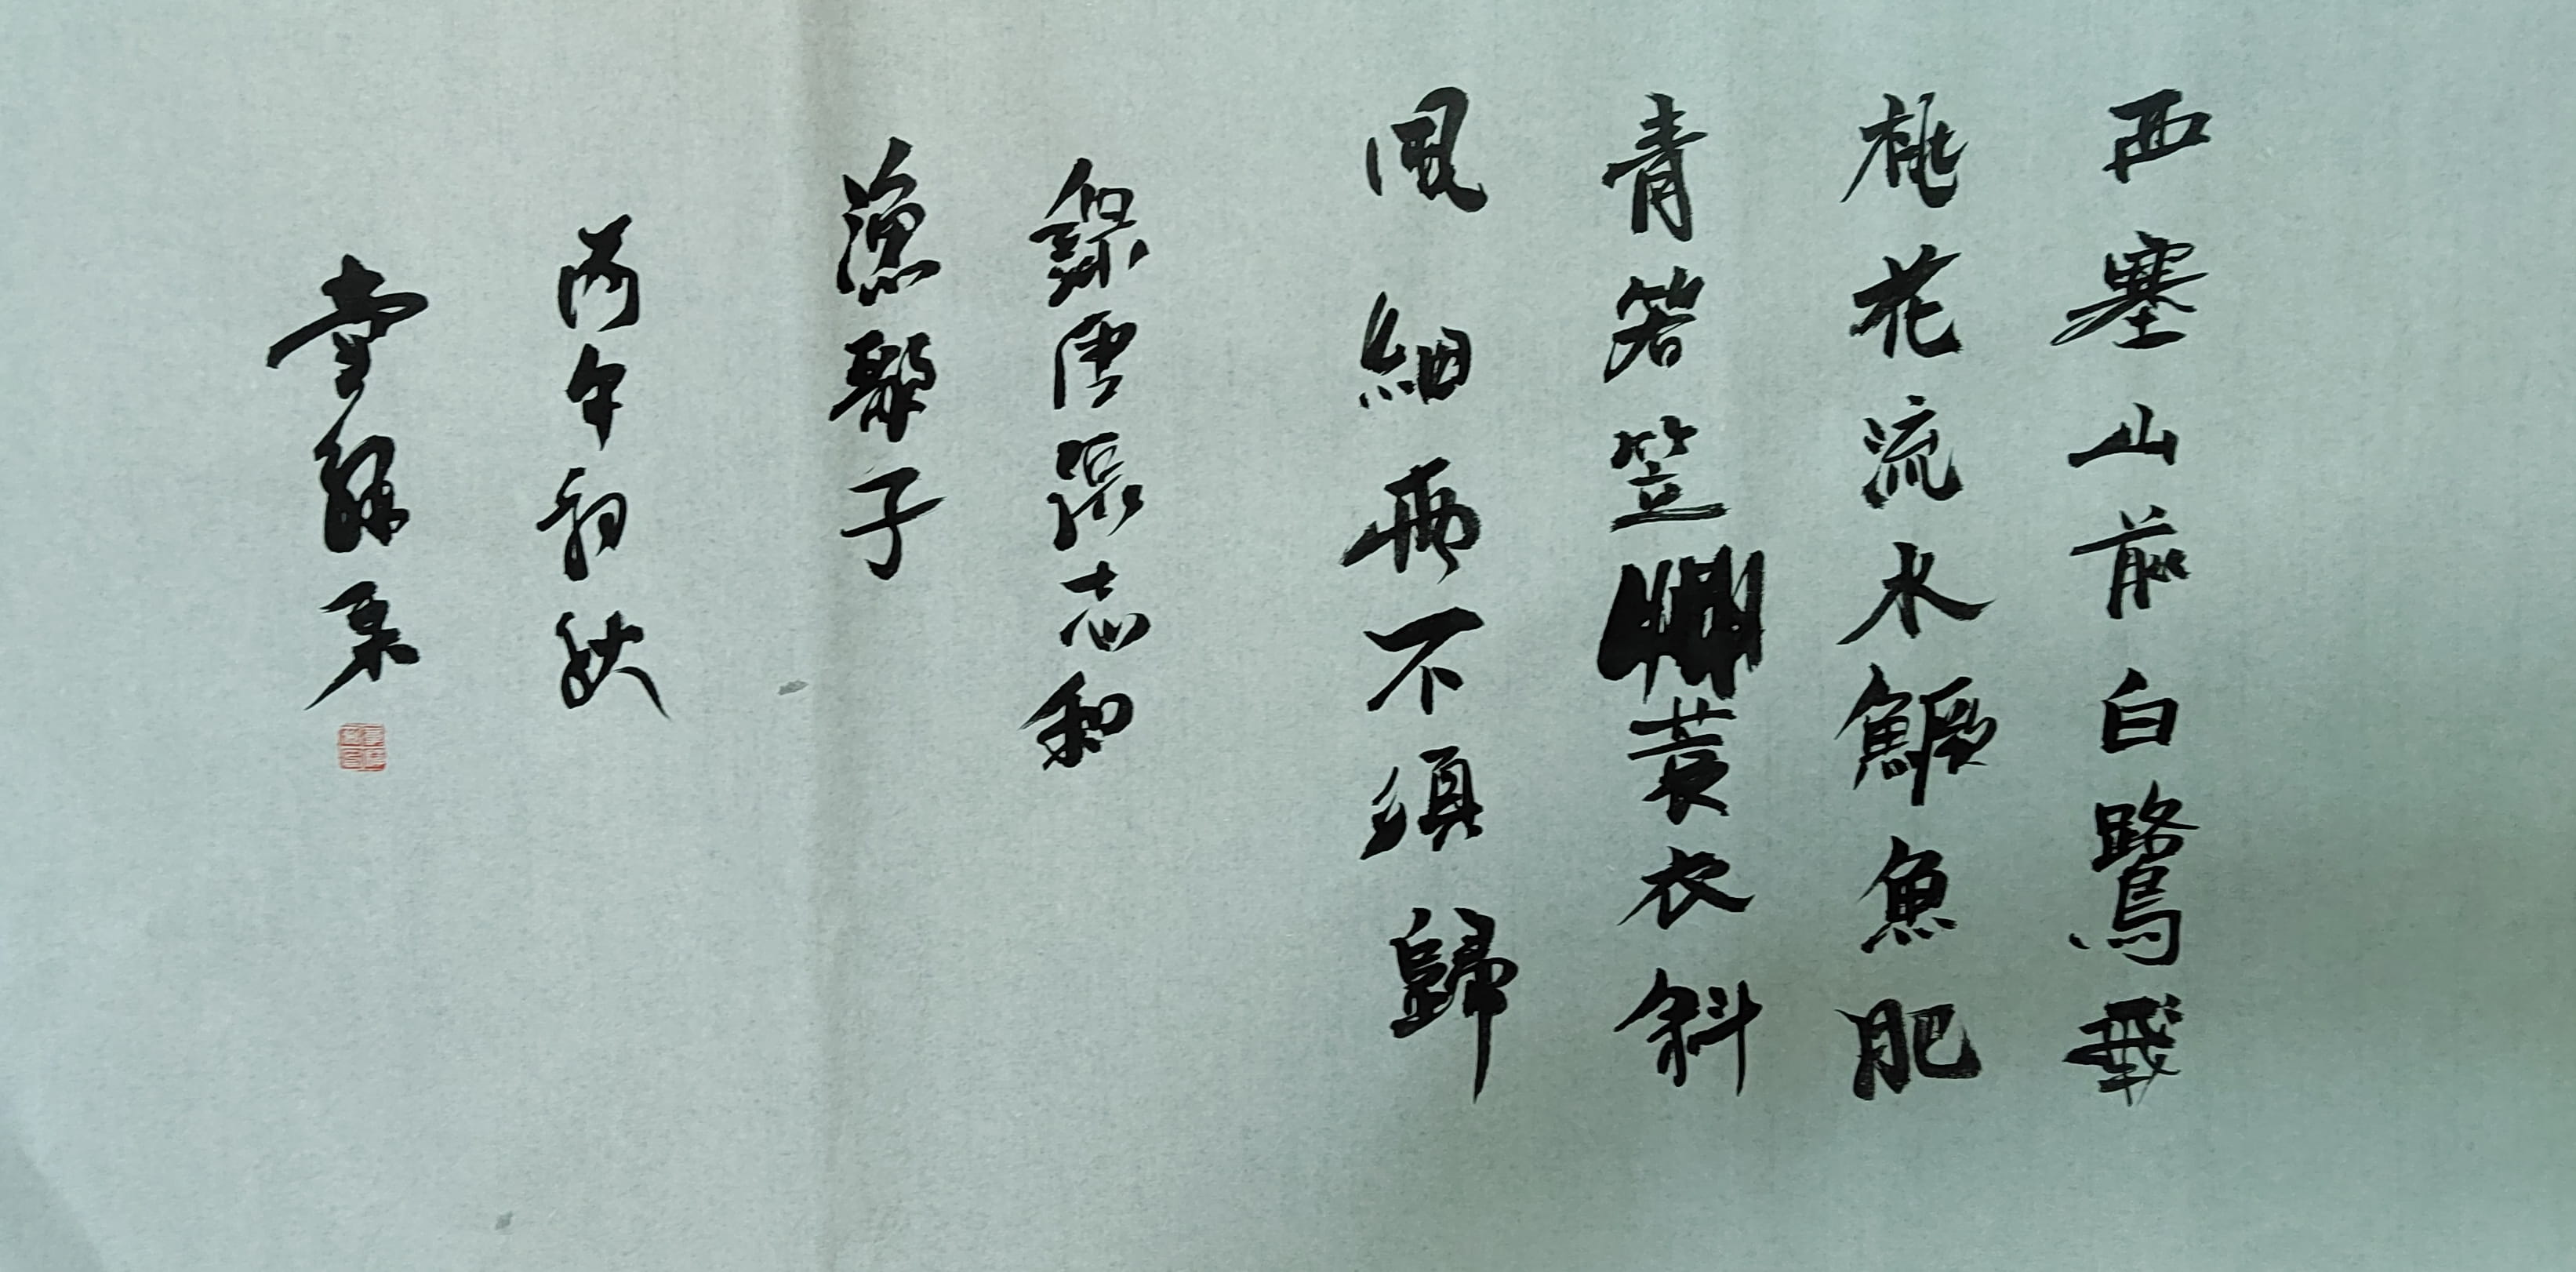 西塞山前白鷺飛
桃花流水鱖魚肥
青箬笠蓑衣斜
風細雨不須歸
錄唐張志和
漁歌子
丙午初秋